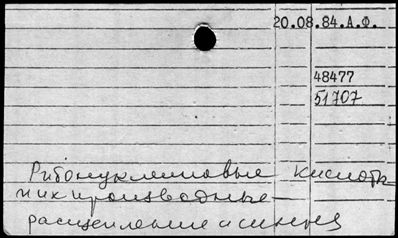 20.08.84.А.Ф.
48477
51707
Рибонуклеиновые кислоты
и их производные -
расщепление и синтез